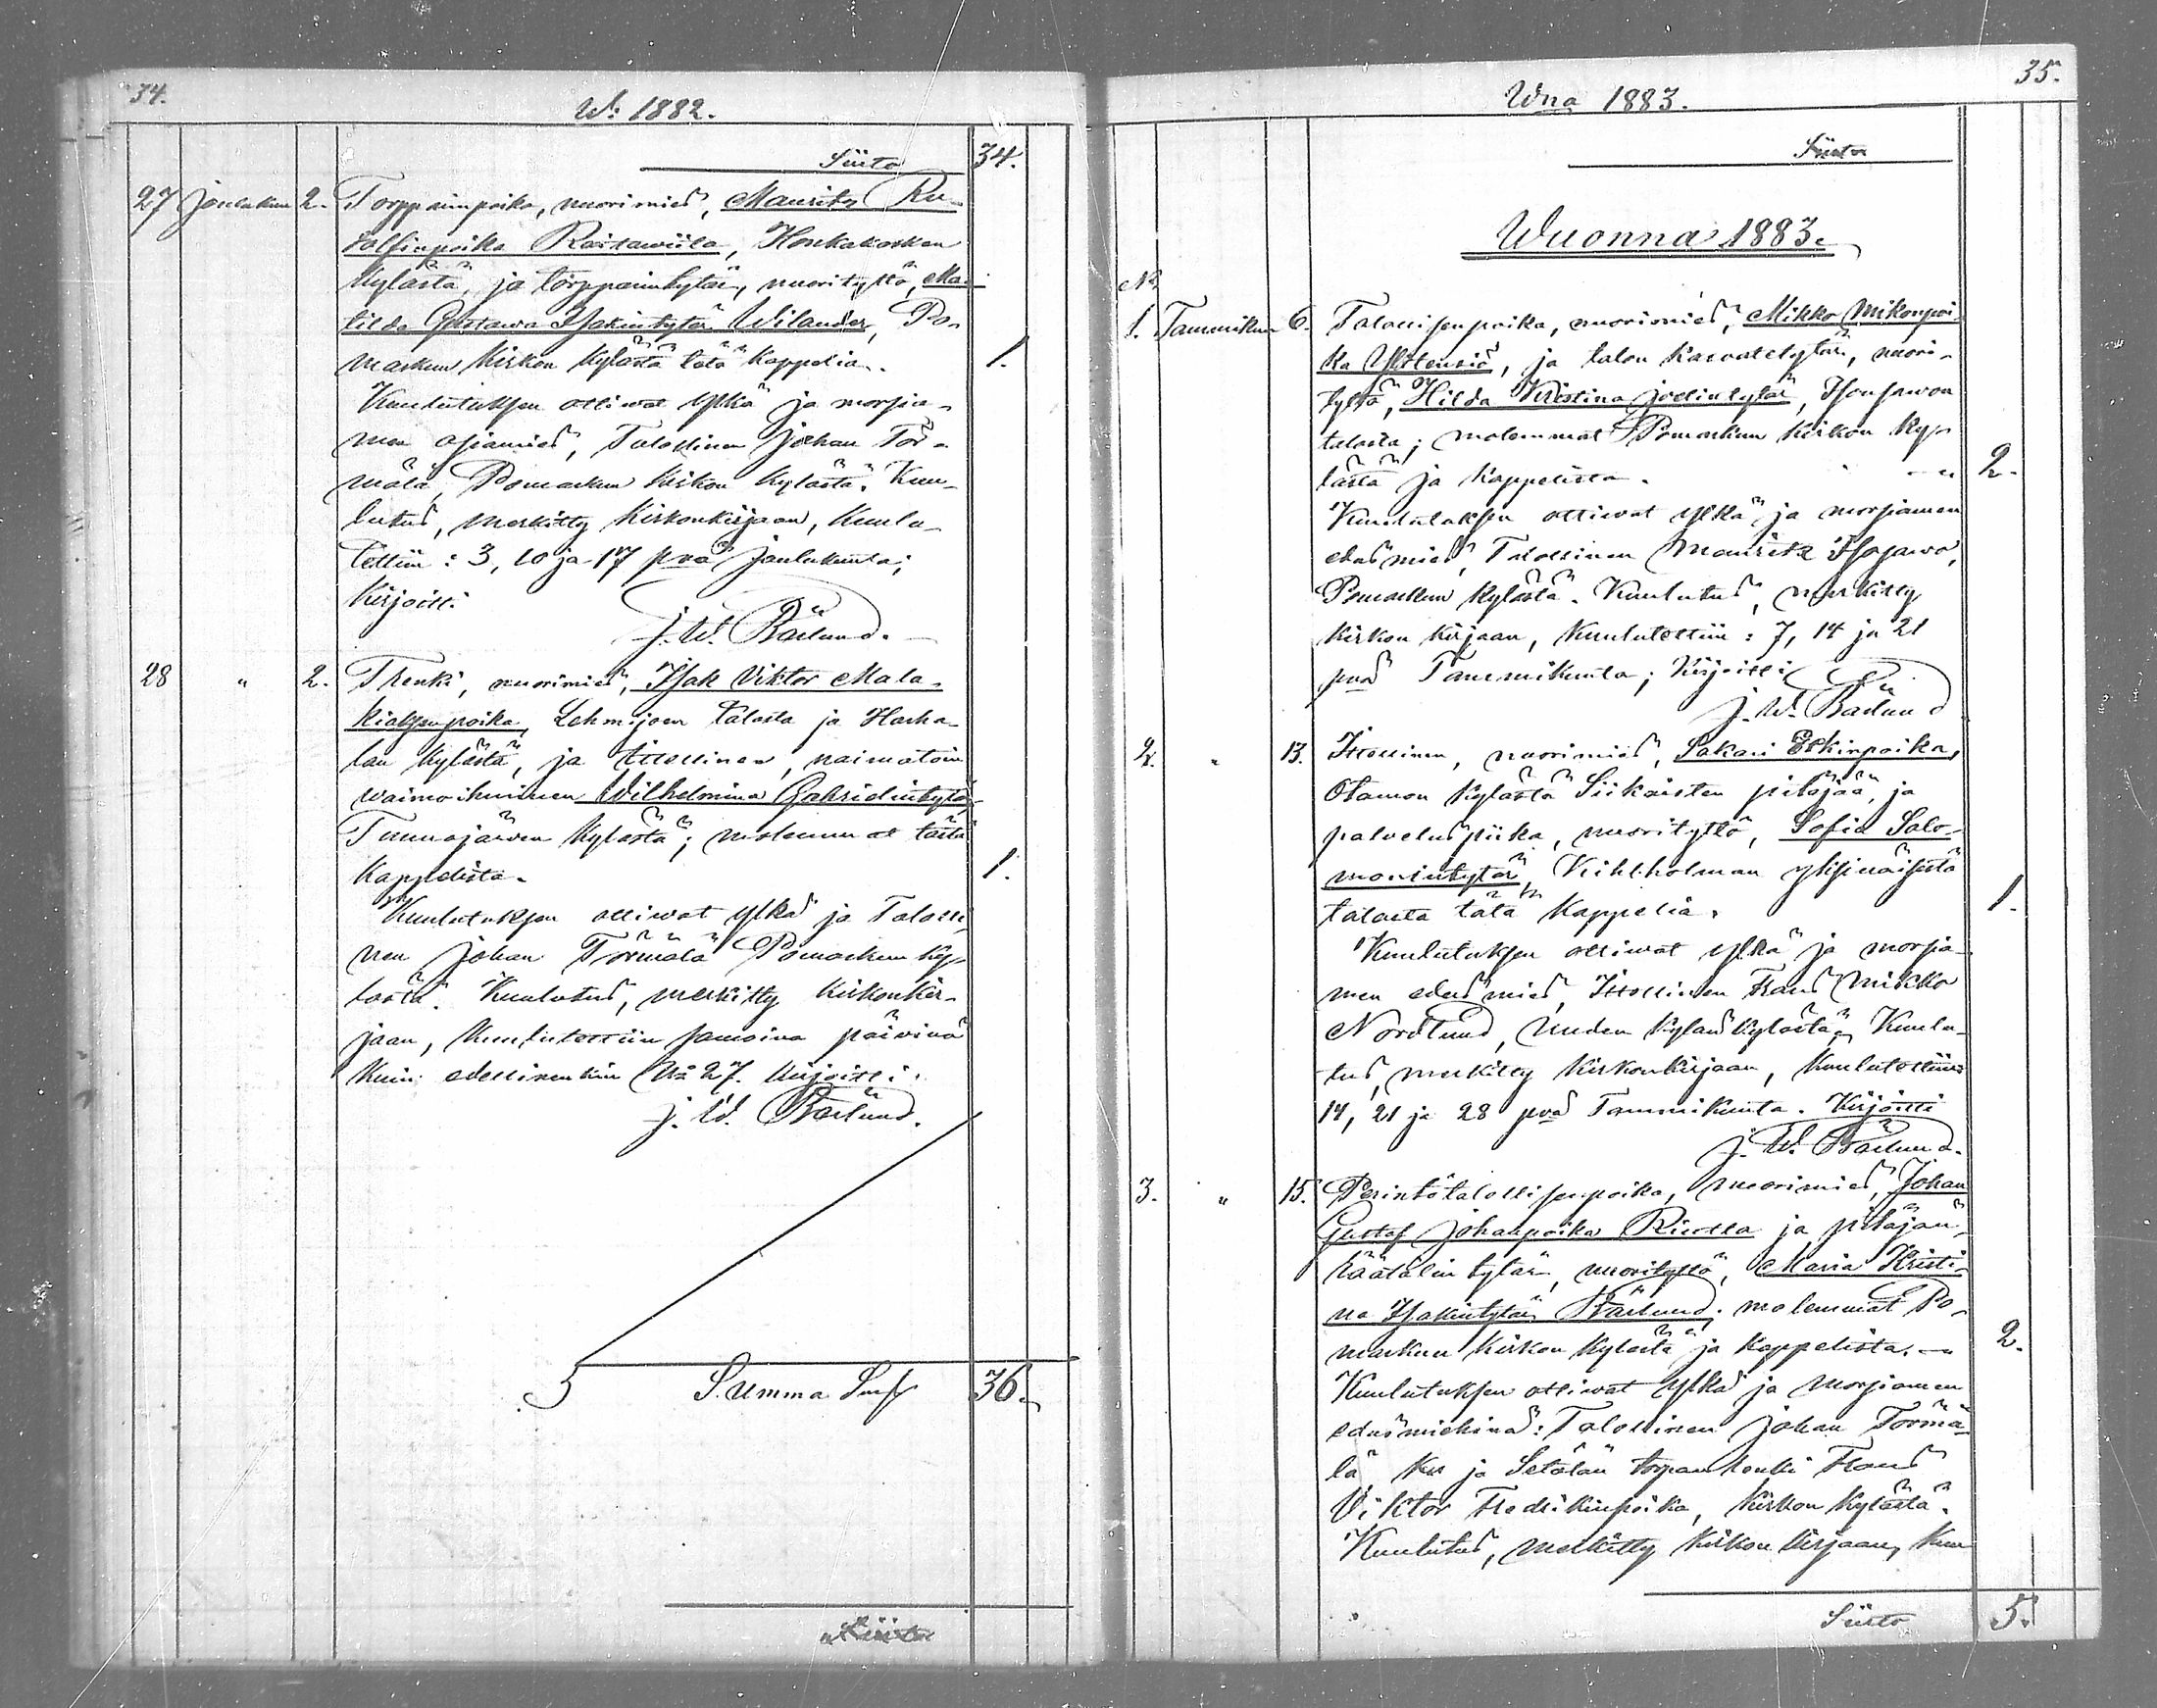 34.
W. 1882.
Siirto 34.
27 Joulukuu 2. Torpparinpoika, nuorimies, Mauritz Ru-
tolfinpoika Raisawiila, Honkakosken
kylästä, ja torpparintytär, nuorityttö, Ma-
tilda Gustawa Isakintytär Wilander, Po-
markun kirkon kylästä tätä kappelia. 1.
Kuulutuksen ottiwat ylkä ja morsia-
men asiamies, Talollinen Johan Tör-
mälä, Pomarkun kirkon kylästä. Kuu-
lutus, merkitty kirkonkirjaan, kuulu-
tettiin: 3, 10 ja 17 pvä Joulukuuta;
Kirjoitti
J. W. Bärlund.
28 " 2. Trenki, nuorimies, Isak Viktor Mala-
kiaksenpoika, Lehmijoen talosta ja Harha-
lan kylästä, ja Itsellinen, naimatoin
waimoihminen Wilhelmina Gabrielintytär
Tuunajärwen kylästä; molemmat tästä
Kappelista. 1.
Kuulutuksen ottiwat ylkä ja Talolli-
nen Johan Törmälä Pomarkun ky-
lästä. Kuulutus, merkitty kirkonkir-
jaan, kuulutettiin samoina päivinä
kuin edellinenkin No 27. Kirjoitti:
J. W. Bärlund.
Summa Smf 36.
Siirto
35.
Wna 1883.
Siirto
Wuonna 1883.
No
1. Tammikuu 6. Talollisenpoika, nuorimies, Mikko Mikonpoi-
ka Ylistensiö, ja talon kaswatetytär, nuori-
tyttö, Hilda Kristina Joelintytär, Isonsawon
talosta; molemmat Pomarkun kirkon ky-
lästä ja kappelista. 2.
Kuulutuksen ottiwat ylkä ja morsiamen
edusmies, Talollinen Mauritz Isosawo,
Pomarkun kylästä. Kuulutus, merkitty
kirkon kirjaan, kuulutettiin: 7, 14 ja 21
pvä Tammikuuta; Kirjoitti
J. W. Bärlund
2. " 13. Itsellinen, nuorimies, Sakari Erkinpoika,
Otamon kylästä Siikaisten pitäjää, ja
palveluspiika, nuorityttö, Sofia Salo-
monintytär, Kihlholman yksinäisestä
talosta tätä kappelia. 1.
Kuulutuksen ottiwat ylkä ja morsia-
men edusmies, Itsellinen Frans Mikko
Nordlund, Uuden kylän kylästä. Kuulu-
tus, merkitty kirkonkirjaan, kuulutettiin
14, 21 ja 28 pvä Tammikuuta. Kirjoitti
J. W. Bärlund.
3. " 15. Perintötalollisenpoika, nuorimies, Johan
Gustaf Johanpoika Riutta ja pitäjän-
räätälin tytär, nuorityttö, Maria Kristi-
na Isakintytär Bärlund; molemmat Po-
markun kirkon kylästä ja kappelista. 2.
Kuulutuksen ottiwat ylkä ja morsiamen
edusmiehinä: Talollinen Johan Törmä-
lä ja Setälän torpan trenki Frans
Viktor Fredrikinpoika, kirkon kylästä.
Kuulutus, merkitty kirkon kirjaan, kuu
Siirto 5.